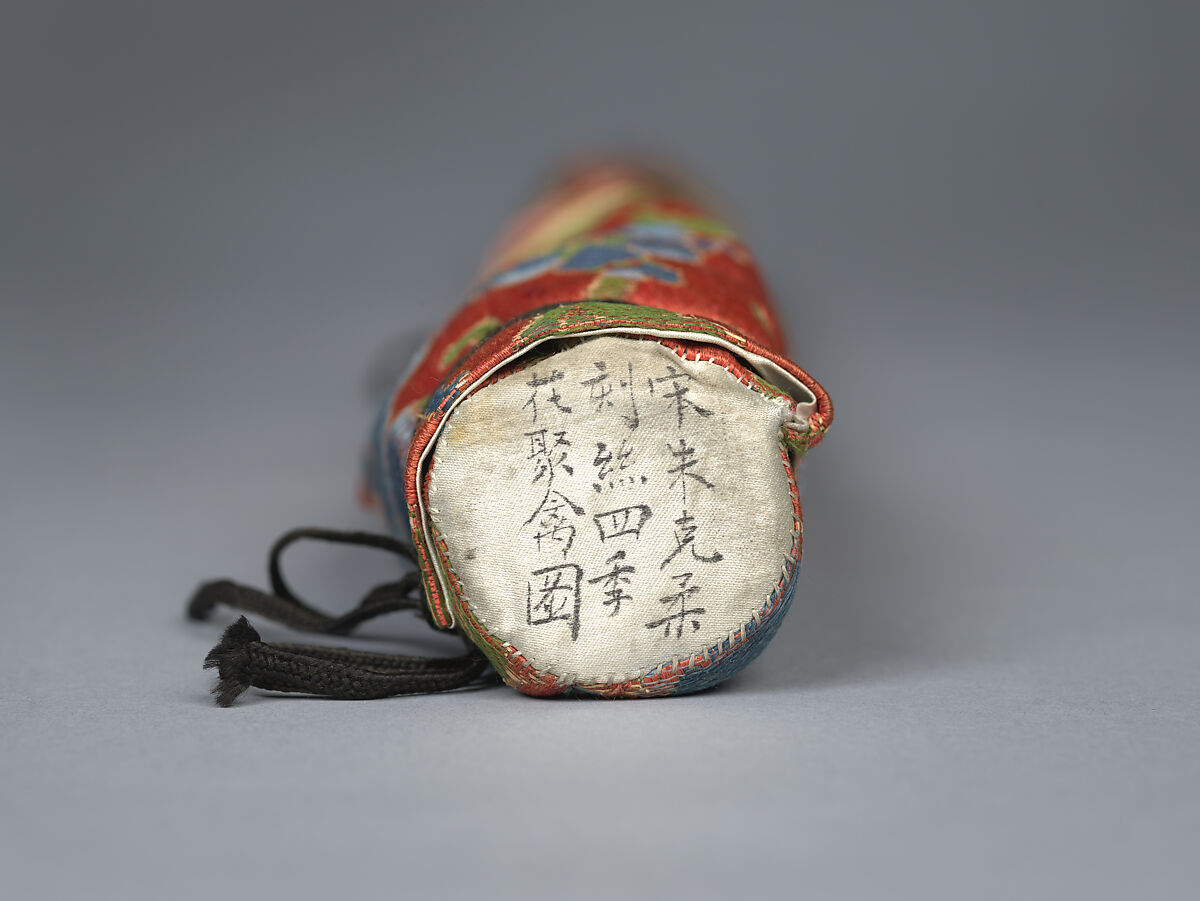 宋朱克柔
刻絲四季
花聚禽圖